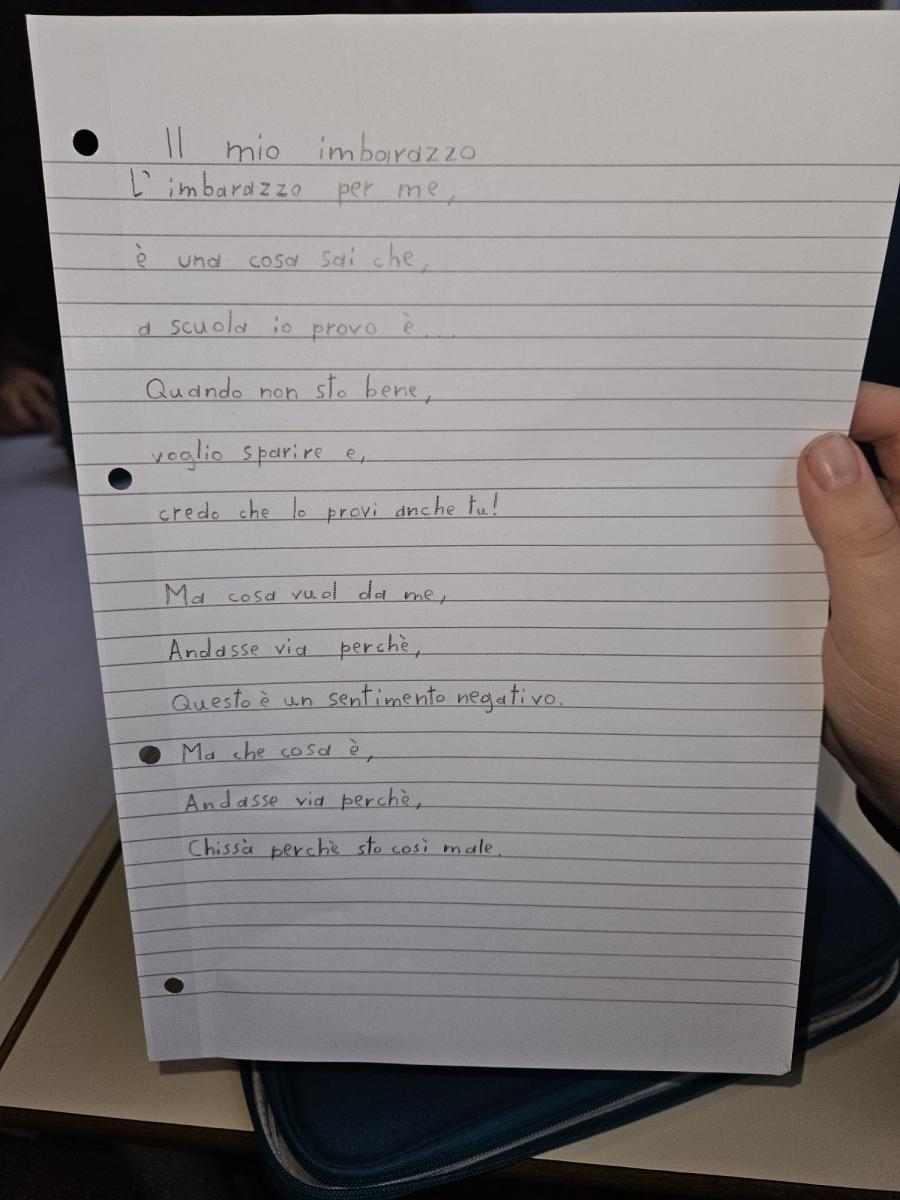 Il mio imbarazzo
L'imbarazzo per me,
è una cosa sai che,
a scuola io provo è...
Quando non sto bene,
voglio sparire e,
credo che lo provi anche tu!
Ma cosa vuol da me,
Andasse via perchè,
Questo è un sentimento negativo.
Ma che cosa è,
Andasse via perchè,
Chissà perchè sto così male.